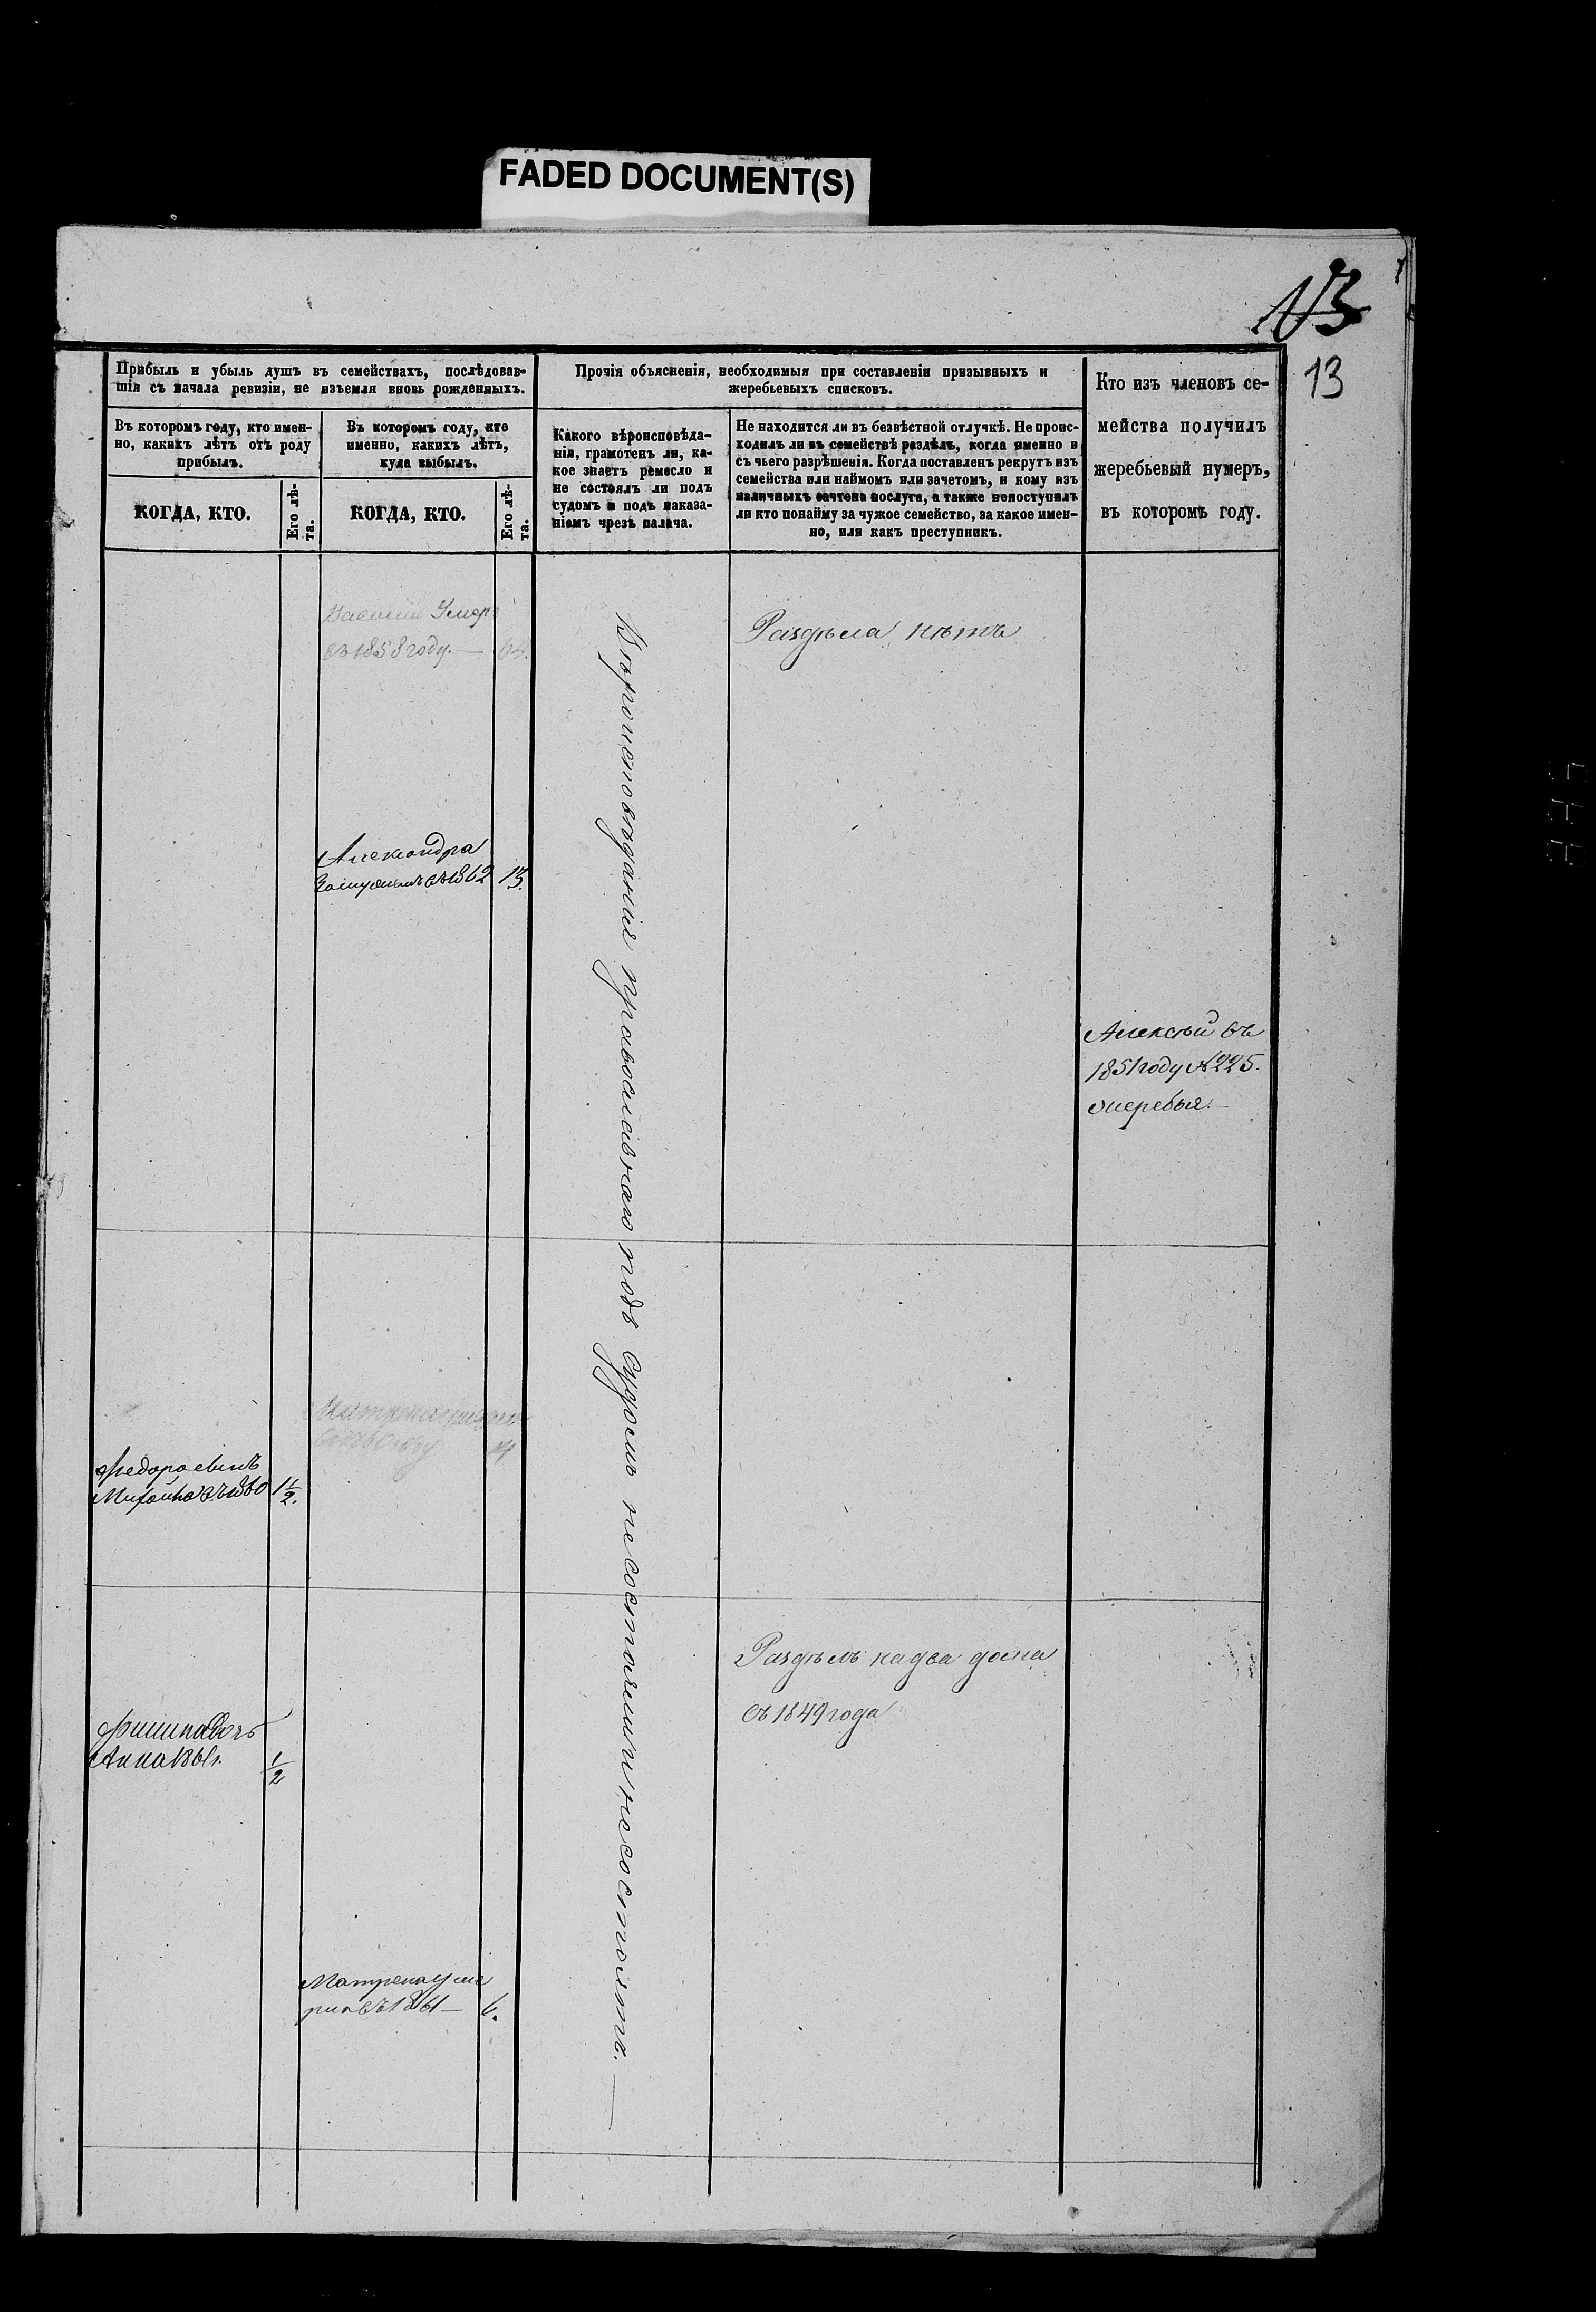 FADED DOCUMENT(S)
13
13
Прибыль и убыль душъ въ семействахъ, послѣдовав-
шія съ начала ревизіи, не изъемля вновь рожденныхъ.
Въ которомъ году, кто имен-
но, какихъ лѣтъ отъ роду
прибылъ.
КОГДА, КТО.
Его лѣ-
та.
Въ которомъ году, кто
именно, какихъ лѣтъ,
куда выбылъ.
КОГДА, КТО.
Его лѣ-
та.
Прочія объясненія, необходимыя при составленіи призывныхъ и
жеребьевыхъ списковъ.
Какого вѣроисповѣда-
нія, грамотенъ ли, ка-
кое знаетъ ремесло и
не состоялъ ли подъ
судомъ и подъ наказа-
ніемъ чрезъ палача.
Не находится ли въ безвѣстной отлучкѣ. Не проис-
ходилъ ли въ семействѣ раздѣлъ, когда именно и
съ чьего разрѣшенія. Когда поставленъ рекрутъ изъ
семейства или наймомъ или зачетомъ, и кому изъ
наличныхъ зачтена послуга, а также непоступилъ
ли кто понайму за чужое семейство, за какое имен-
но, или какъ преступникъ.
Кто изъ членовъ се-
мейства получилъ
жеребьевый нумеръ,
въ которомъ году.
Василій Умеръ
въ 1858 году. — 64.
Раздѣла нѣтъ
Александра
Замужемъ въ 1862 13.
Алексѣй въ
1851 году № 225.
жеребья.
Вѣроисповѣданіе православнаго подъ судомъ несостояли и несостоитъ.
Михайла въ 1860 1½.
Раздѣлъ на два дома
съ 1849 года
Анна 1861 г. ½
Матрена уме
рла въ 1861 — 6.